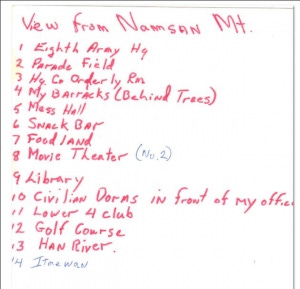 View from Namsan Mt.
1 Eighth Army Hq
2 Parade Field
3 Hq. Co Orderly Rm
4 My Barracks (Behind Trees)
5 Mess Hall
6 Snack Bar
7 Foodland
8 Movie Theater (No. 2)
9 Library
10 Civilian Dorms in front of my office
11 Lower 4 club
12 Golf Course
13 Han River.
14 Itaewan